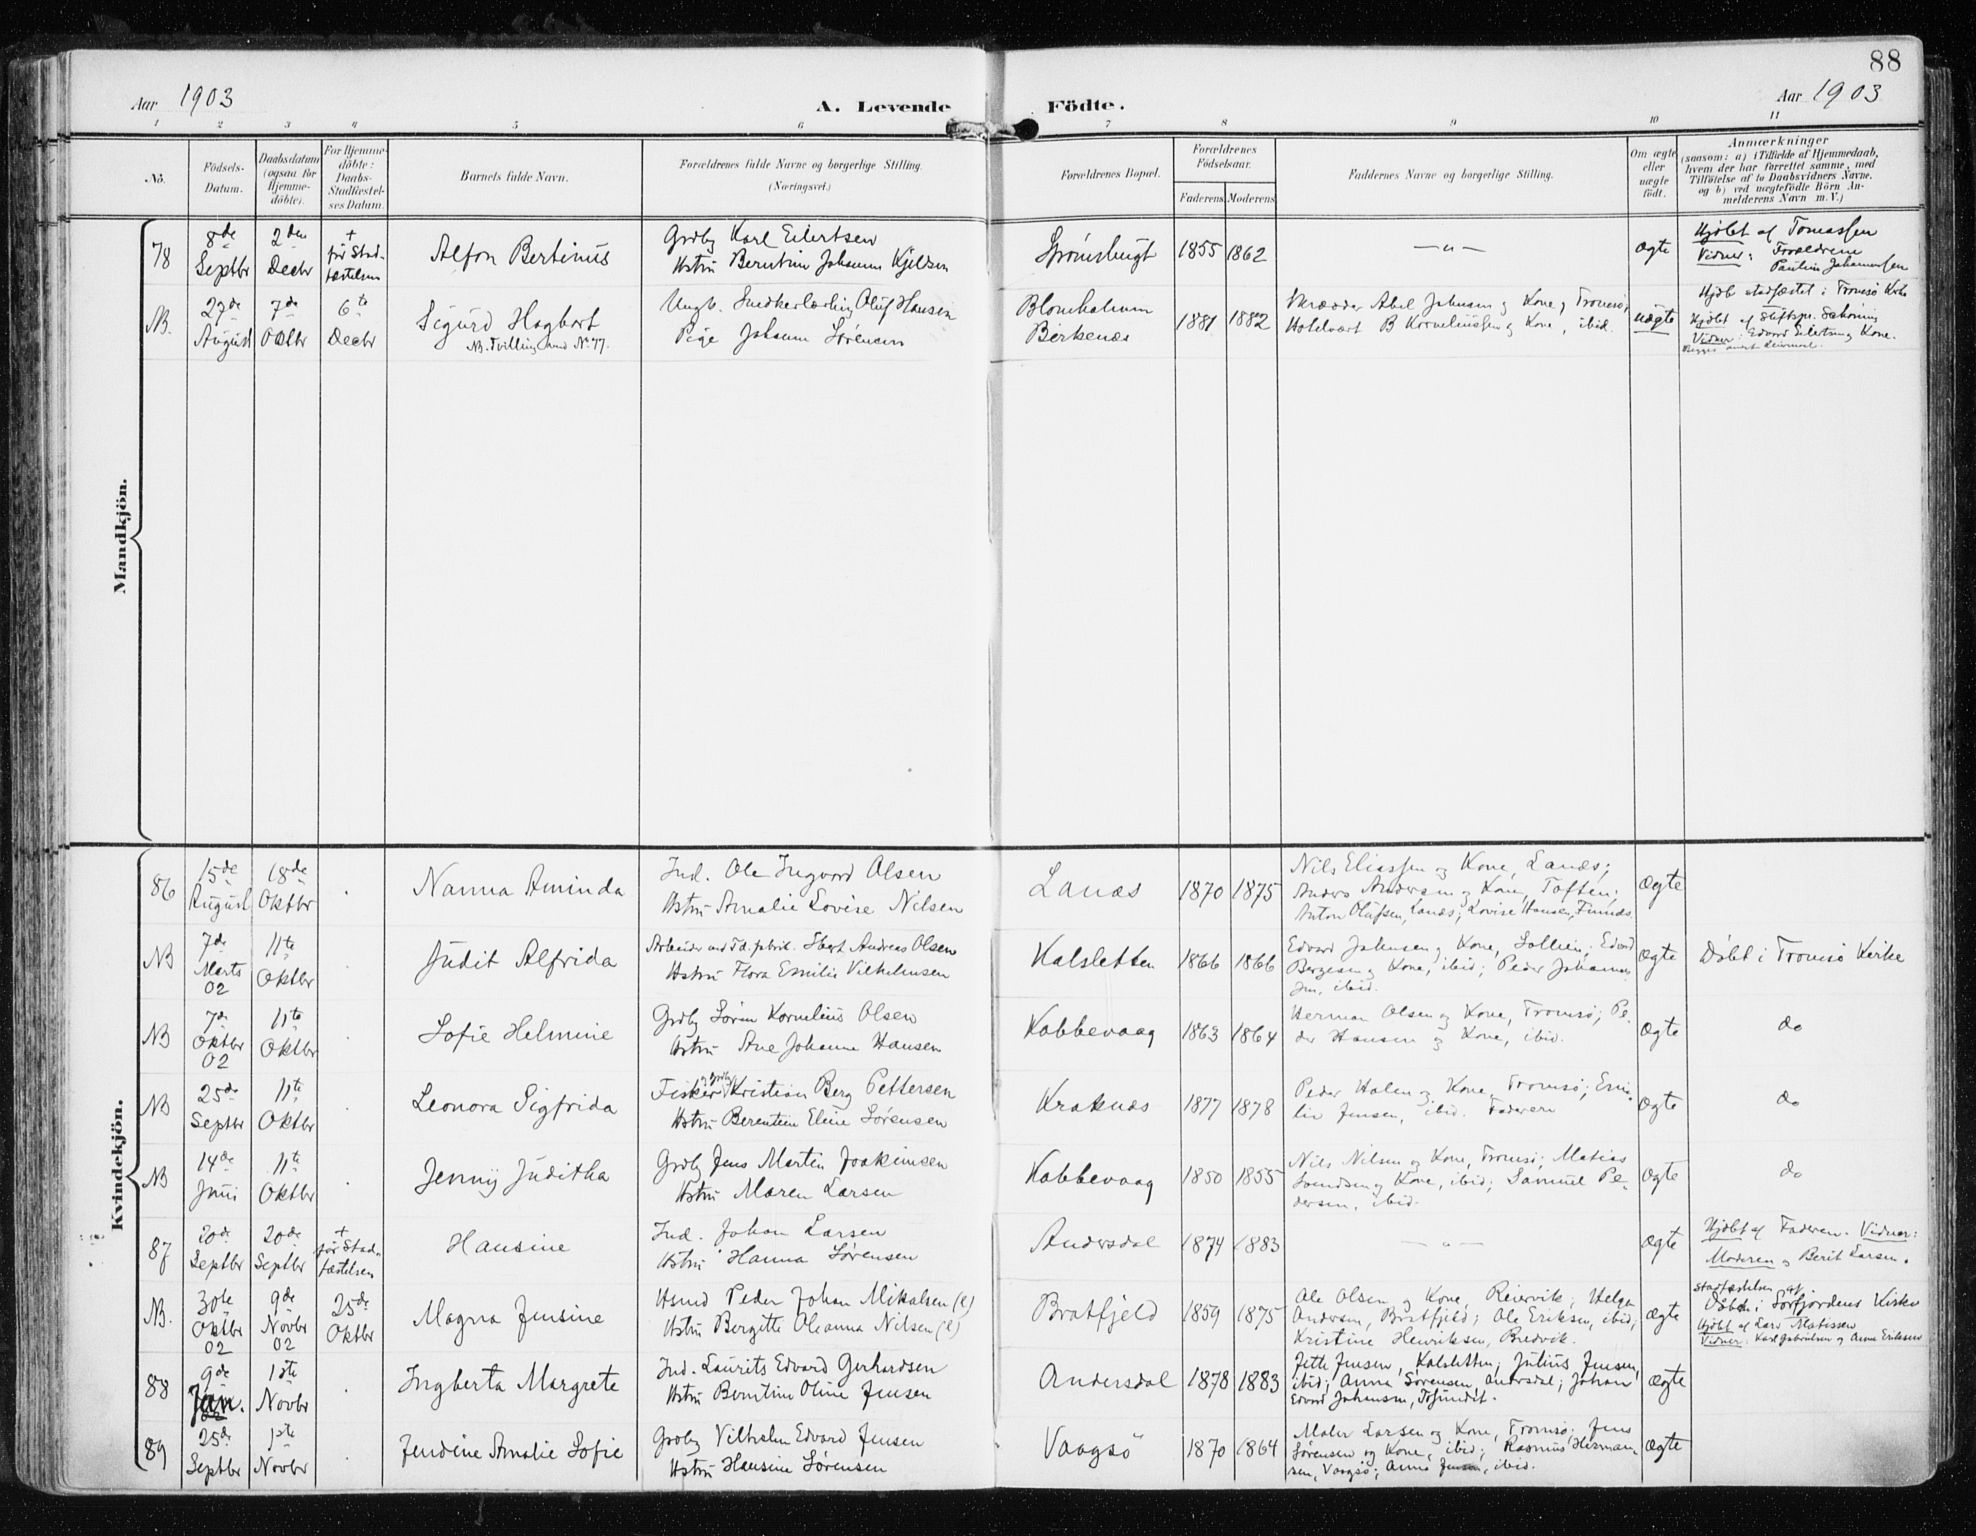 88
Aar 1903
A. Levende Födte.
Aar 1903
1 2 3 4 5 6 7 8 9 10 11
No.
Födsels-Datum.
Daabsdatum (ogsaa for Hjemmedöbte).
For Hjemmedöbte: Daabs-Stadfæstelses Datum.
Barnets fulde Navn.
Forældrenes fulde Navne og borgerlige Stilling.
(Næringsvei.)
Forældrenes Bopæl.
Forældrenes Födselsaar.
Faderens Moderens
Faddernes Navne og borgerlige Stilling.
Om ægte eller uægte födt.
Anmærkninger
(saasom: a) i Tilfælde af Hjemmedaab,
hvem der har forrettet samme, med
Tilföielse af to Daabsvidners Navne,
og b) ved uægtefödte Börn An-
melderens Navn m. V.)
Mandkjön.
78 8de Septbr 2den Decbr + før Stadfæstelsen
Alfon Bertinus
Grdbr Karl Eilertsen
Hstru Berntine Johanna Kjeldsen
1855 1862
— " —
ægte
Hjdbt af Tomassen
Vidner: Forældrene
Pauline Johannessen
NB. 27de August 7de Oktbr 6te Decbr
Sigurd Hagbart
NB. Tvilling med No 77.
Ungk. Snedkerlærling Oluf Hansen
Pige Johanna Sørensen
Blomholmen
Birkenæs
1881 1882
Skrædder Abel Johnsen og Kone, Tromsø,
Holdvært B Korneliussen og Kone, ibid.
uægte
Hjdb stadfæstet i Tromsø Kirke
Hjdbt af Stiftspr.
Vidner: Edvard Eilertsen og Kone.
Kvindekjön.
86 15de August 18de Oktbr
Nanna Aminda
Ind. Ole Ingvard Olsen
Hstru Amalie Lovise Nilsen
Lanæs
1870 1875
Nils Eliassen og Kone, Lanæs;
Anders Andersen og Kone, Toften;
Anton Olufsen, Lanæs; Lovise Hansen,
ægte
NB 7de Marts 02 11te Oktbr
Judit Alfrida
Arbeider ved Td. fabrik. Ebert Andreas Olsen
Hstru Flora Emilie Vilhelmsen
Kalsletten
1866 1866
Edvard Johnsen og Kone, Sollien; Edvard
Bergesen og Kone, ibid; Peder Johannes-
sen, ibid.
ægte
Døbt i Tromsø Kirke
NB 7de Oktbr 02 11te Oktbr
Sofie Helmine
Grdbr Søren Kornelius Olsen
Hstru Ane Johanna Hansen
Kobbevaag
1863 1864
Herman Olsen og Kone, Tromsø; Pe-
der Hansen og Kone, ibid.
ægte
do
NB 25de Septbr 11te Oktbr
Leonora Sigfrida
Fisker og grdbr Kristian Berg Pettersen
Hstru Berentein Eline Sørensen
Kraknæs
1877 1878
Peder Holen og Kone, Tromsø; Emi-
lie Jensen, ibid. Faderen
ægte
do
NB 14de Juni 11te Oktbr
Jenny Juditha
Grdbr Jens Martin Joakimsen
Hstru Maren Larsen
Kobbevaag
1850 1855
Nils Nilsen og Kone, Tromsø; Matias
Svendsen og Kone, ibid; Samuel Pe-
dersen, ibid.
ægte
do
87 20de Septbr 20de Septbr + før Stadfæstelsen
Hansine
Ind. Johan Larsen
Hstru Hanna Sørensen
Andersdal
1874 1883
— " —
ægte
Hjdbt af Faderen. Vidner:
Moderen og Berit Larsen.
NB. 30te Oktbr 02 9de Novbr 02 25de Oktbr
Magna Jensine
Hsmd Peder Johan Mikalsen (l)
Hstru Bergitte Oleanna Nilsen (l)
Bratfjeld
1859 1875
Ole Olsen og Kone, Reiervik; Helga
Andersen, Bratfjeld; Ole Eriksen, ibid;
Kristine Henriksen, Bredvik.
ægte
Stadfæstelsen af
Døbt i Sørfjordens Kirke
Hjdbt af Lars Matissen
Vidner: Karl Gabrielsen og Anna Eriksen
88 9de Jan. 1ste Novbr
Ingberta Margrete
Ind. Laurits Edvard Gerhardsen
Hstru Berntine Oline Jensen
Andersdal
1878 1883
Jette Jensen, Kalsletten; Julius Jensen,
ibid; Anna Sørensen, Andersdal; Johan
Edvard Johansen, Tøsundet.
ægte
89 25de Septbr 1ste Novbr
Jendine Amalie Sofie
Grdbr Vilhelm Edvard Jensen
Hstru Hansine Sørensen
Vaagsø
1870 1864
Maler Larsen og Kone, Tromsø; Jens
Sørensen og Kone, ibid; Rasmus Herman-
sen, Vaagsø; Anna Jensen, ibid.
ægte